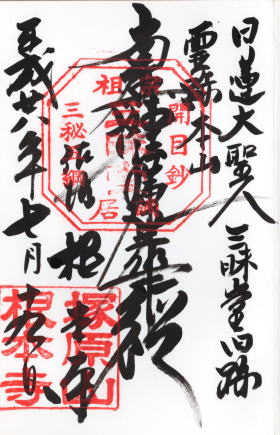 日蓮大聖人
三昧堂旧跡
霊跡本山
南無妙法蓮華経
佐渡 根本寺
平成廿八年七月
開目鈔
三秘五綱
塚原山
根本寺